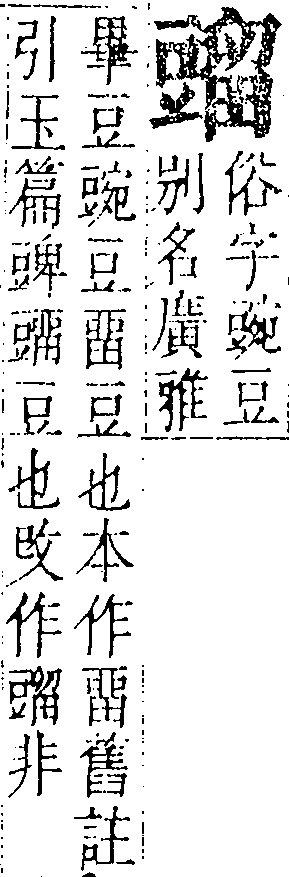 䜉
俗字豌豆
別名廣雅
畢豆豌豆畱豆也本作畱舊註
引玉篇豍䜉豆也改作䜉非